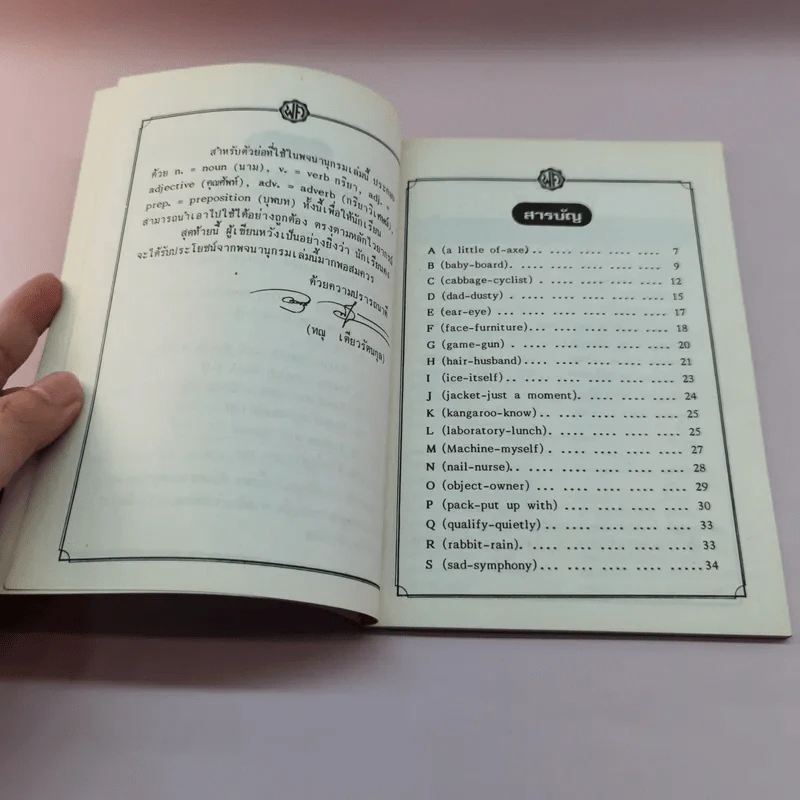 สำหรับตัวย่อที่ใช้ในพจนานุกรมเล่มนี้ ประกอบ
ด้วย n. = noun (นาม), v. = verb กริยา, adj. =
adjective (คุณศัพท์), adv. = adverb (กริยาวิเศษณ์),
prep. = preposition (บุพบท) ทั้งนี้เพื่อให้นักเรียน
สามารถนำเอาไปใช้ได้อย่างถูกต้อง ตรงตามหลักไวยากรณ์
สุดท้ายนี้ ผู้เขียนหวังเป็นอย่างยิ่งว่า นักเรียนคง
จะได้รับประโยชน์จากพจนานุกรมเล่มนี้มากพอสมควร
ด้วยความปรารถนาดี
(ทณุ เตียวรัตนกุล)
สารบัญ
A (a little of-axe).. .... .... .... .... 7
B (baby-board). .... .... .... .... 9
C (cabbage-cyclist) .... .... .... .... 12
D (dad-dusty) . .... .... .... .... 15
E (ear-eye) .... .... .... .... .... 17
F (face-furniture)... .... .... .... .... 18
G (game-gun) . .... .... .... .... 20
H (hair-husband) .... .... .... .... 21
I (ice-itself) .. .... .... .... .... 23
J (jacket-just a moment). .... .... .... 24
K (kangaroo-know) .. .... .... .... .... 25
L (laboratory-lunch). .... .... .... .... 25
M (Machine-myself) . .... .... .... .... 27
N (nail-nurse).. .... .... .... .... 28
O (object-owner) ... .... .... .... .... 29
P (pack-put up with) .... .... .... .... 30
Q (qualify-quietly) .. .... .... .... .... 33
R (rabbit-rain). .... .... .... .... 33
S (sad-symphony)... .... .... .... .....34